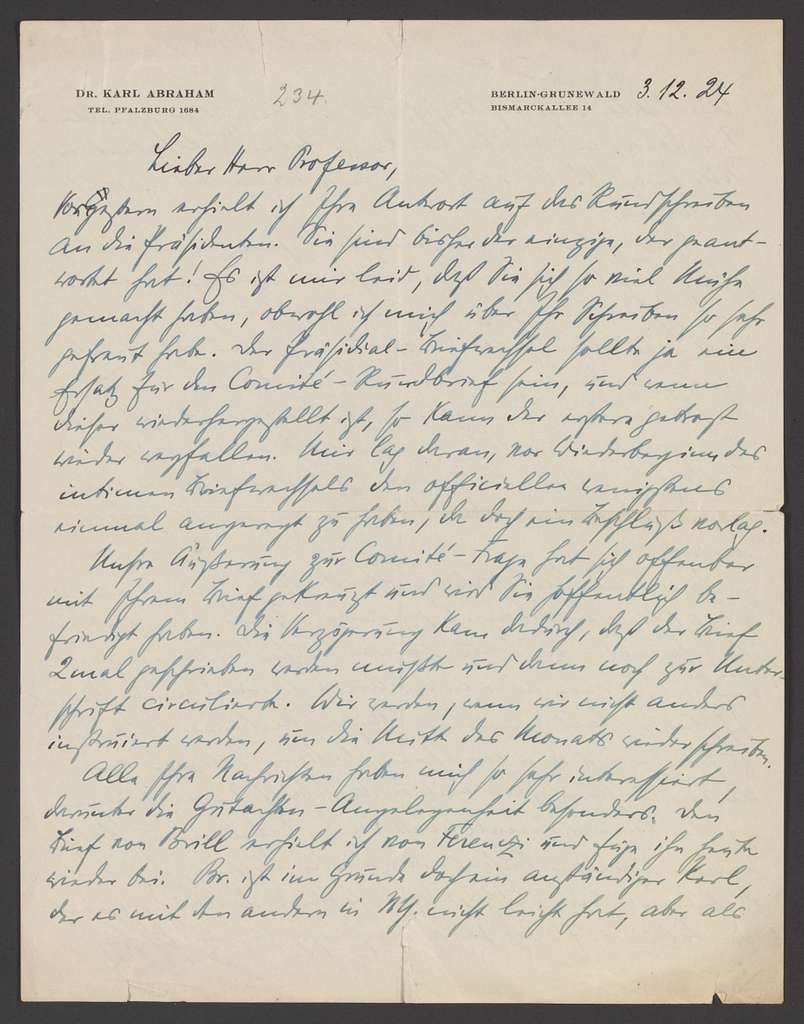 DR. KARL ABRAHAM
TEL. PFALZBURG 1684
234.
BERLIN-GRUNEWALD 3.12.24
BISMARCKALLEE 14
Lieber Herr Professor,
Vorgestern erhielt ich Ihre Antwort auf das Rundschreiben
an die Präsidenten. Sie sind bisher der einzige, der geant-
wortet hat! Es ist mir leid, daß Sie sich so viel Mühe
gemacht haben, obwohl ich mich über Ihr Schreiben so sehr
gefreut habe. Der Präsidial-Briefwechsel sollte ja ein
Ersatz für den Comité-Rundbrief sein, und wenn
dieser wiederhergestellt ist, so kann der erstere getrost
wieder wegfallen. Mir lag daran, vor Wiederbeginn des
intimen Briefwechsels den officiellen wenigstens
einmal angeregt zu haben, da doch ein Beschluß vorlag.
Unsre Äußerung zur Comité-Frage hat sich offenbar
mit Ihrem Brief gekreuzt und wird Sie hoffentlich be-
friedigt haben. Die Verzögerung kam dadurch, daß der Brief
2mal geschrieben werden mußte und dann noch zur Unter-
schrift circulierte. Wir werden, wenn wir nicht anders
instruiert werden, um die Mitte des Monats wieder schreiben.
Alle Ihre Nachrichten haben mich so sehr interessiert,
darunter die Gutachten-Angelegenheit besonders. Den
Brief von Brill erhielt ich von Ferenczi und füge ihn heute
wieder bei. Br. ist im Grunde doch ein anständiger Kerl,
der es mit den andern in NY. nicht leicht hat, aber als